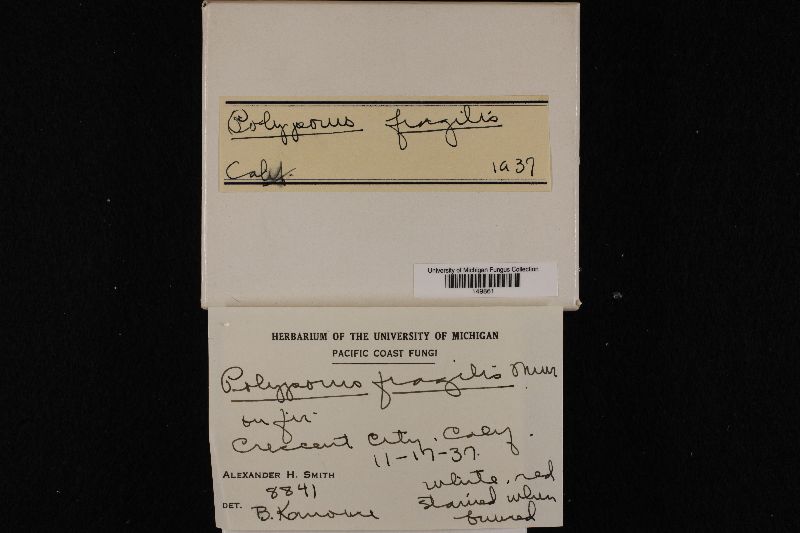 Polyporus fragilis
Calif. 1937
University of Michigan Fungus Collection
149861
HERBARIUM OF THE UNIVERSITY OF MICHIGAN
PACIFIC COAST FUNGI
Polyporus fragilis
on fir
Crescent City, Calif.
11-17-37.
ALEXANDER H. SMITH
8841
white, red
stained when
bruised
DET. B. Kanouse